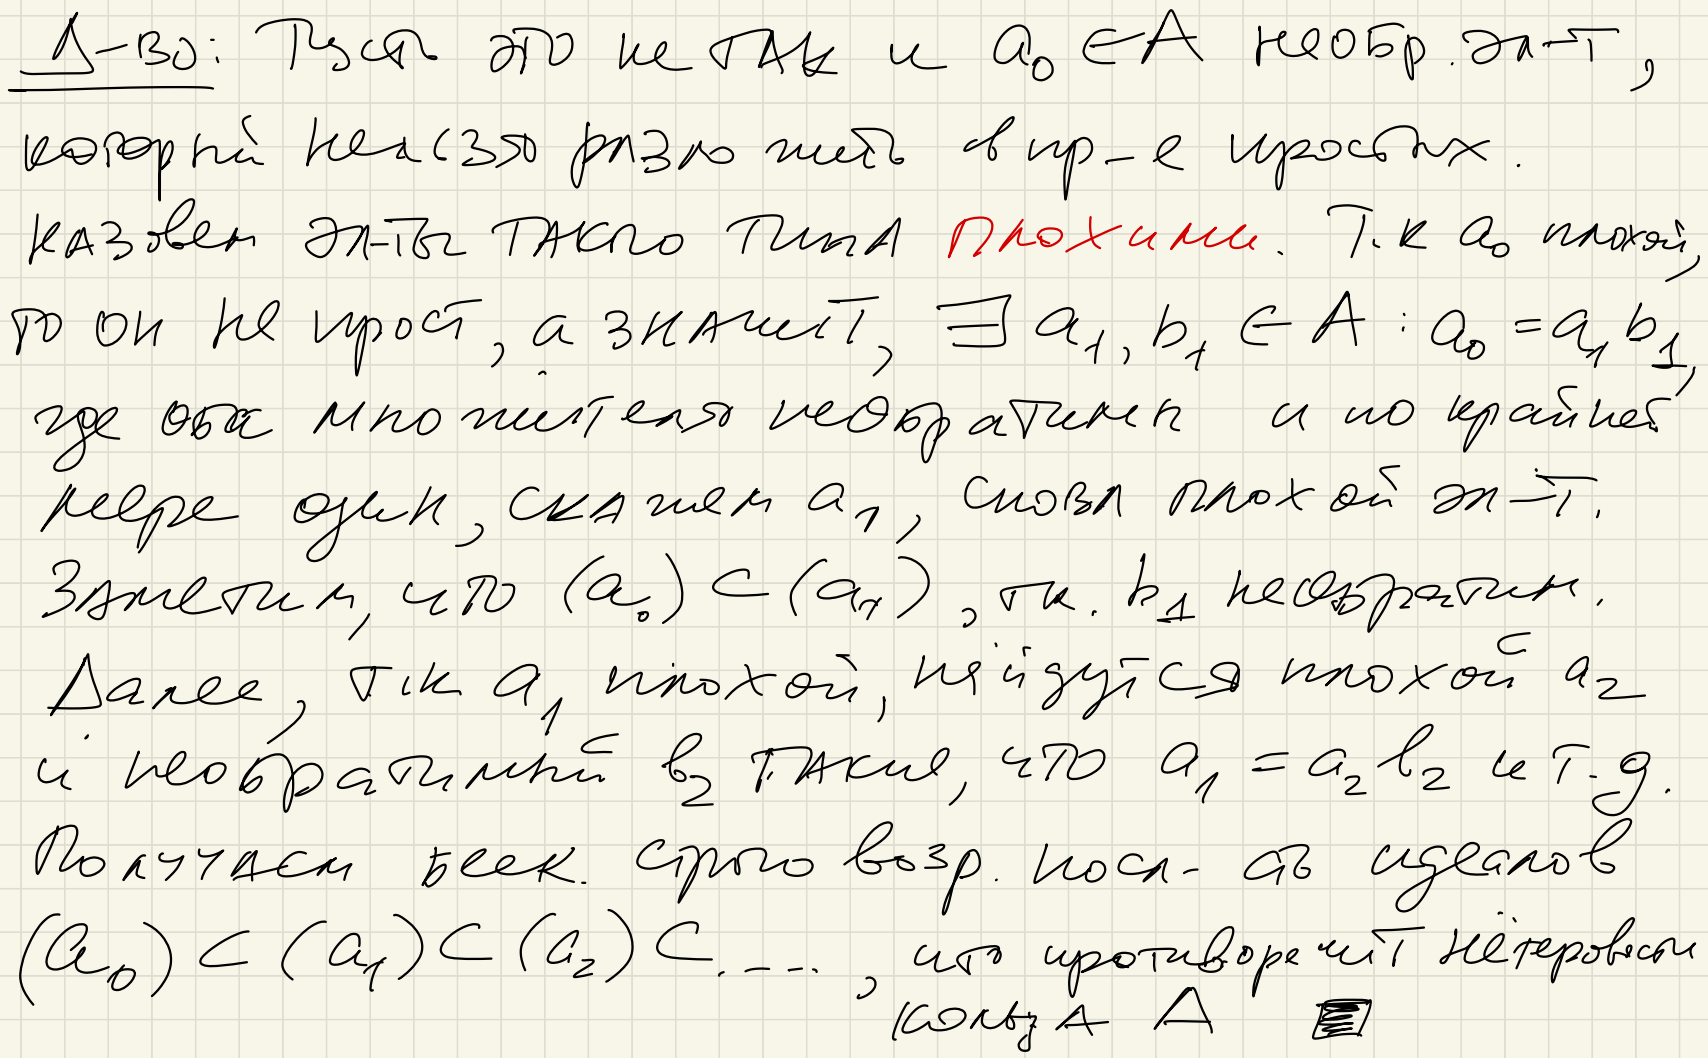 Д-во: Пусть это не так и a₀ ∈ A необр. эл-т,
который нельзя разложить в пр-е простых.
Назовем эл-ты такого типа плохими. Т.к a₀ плохой,
то он не прост, а значит, ∃ a₁, b₁ ∈ A : a₀ = a₁ b₁,
где оба множителя необратимы и по крайней
мере один, скажем a₁, снова плохой эл-т.
Заметим, что (a₀) ⊂ (a₁), т.к. b₁ необратим.
Далее, т.к a₁ плохой, найдутся плохой a₂
и необратимый b₂ такие, что a₁ = a₂ b₂ и т.д.
Получаем беск. строго возр. посл-ть идеалов
(a₀) ⊂ (a₁) ⊂ (a₂) ⊂ ...., что противоречит нётеровости
кольца A